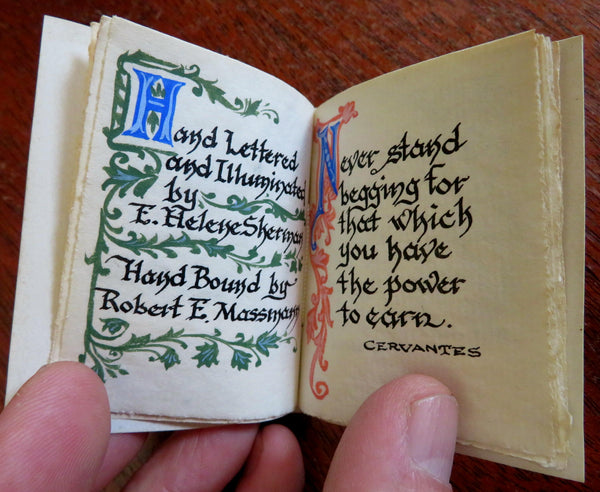 Hand Lettered
and Illuminated
by
E. Helene Sherman
Hand Bound by
Robert E. Massmann
Never stand
begging for
that which
you have
the power
to earn.
CERVANTES